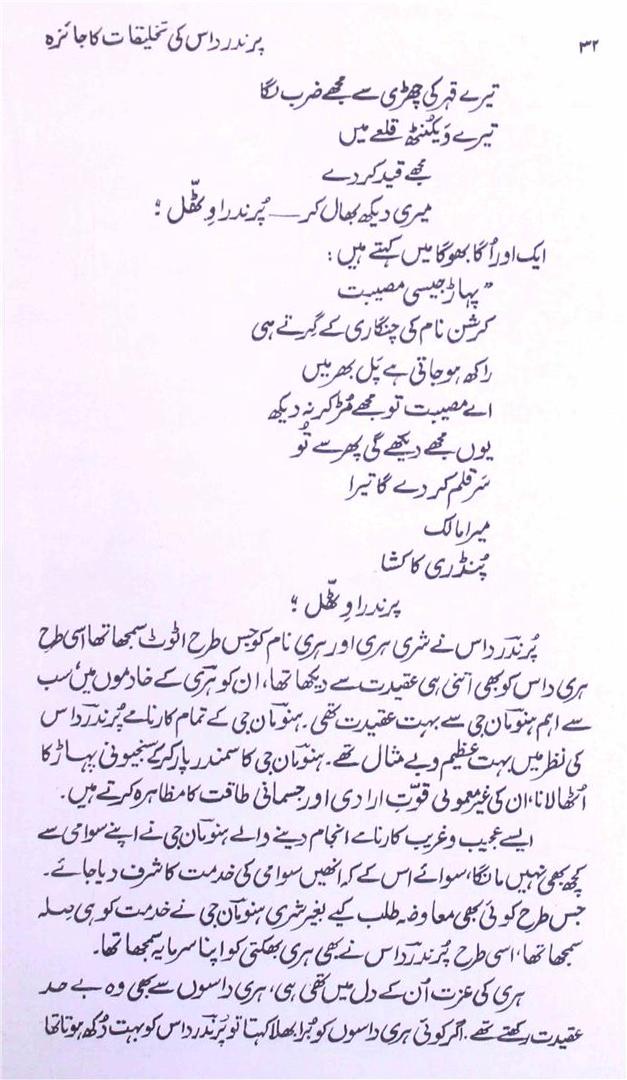 ۳۲
پرندر داس کی تخلیقات کا جائزہ
تیرے قہر کی چھڑی سے مجھے ضرب لگا
تیرے وَیکُنٹھ قلعے میں
مجھے قید کر دے
میری دیکھ بھال کر ــــ پُرندرا وٹھّل ؛
ایک اور اُگا بھوگا میں کہتے ہیں :
" پہاڑ جیسی مصیبت
کرشن نام کی چنگاری کے گرتے ہی
راکھ ہو جاتی ہے پَل بھر میں
اے مصیبت تو مجھے مُڑ کر نہ دیکھ
یوں مجھے دیکھے گی پھر سے تُو
سَر قلم کر دے گا تیرا
میرا مالک
پُنڈری کا کشا
پرندرا وٹھّل ؛
پُرندر داس نے شری ہری اور ہری نام کو جس طرح اٹوٹ سمجھا تھا اسی طرح
ہری داس کو بھی اتنی ہی عقیدت سے دیکھا تھا، ان کو ہری کے خادموں میں سب
سے اہم ہنومان جی سے بہت عقیدت تھی۔ ہنومان جی کے تمام کارنامے پُرندر داس
کی نظر میں بہت عظیم و بے مثال تھے۔ ہنومان جی کا سمندر پار کر کے سنجیونی پہاڑ کا
اُٹھا لانا، ان کی غیر معمولی قوّتِ ارادی اور جسمانی طاقت کا مظاہرہ کرتے ہیں۔
ایسے عجیب و غریب کارنامے انجام دینے والے ہنومان جی نے اپنے سوامی سے
کچھ بھی نہیں مانگا، سوائے اس کے کہ انھیں سوامی کی خدمت کا شرف دیا جائے۔
جس طرح کوئی بھی معاوضہ طلب کیے بغیر شری ہنومان جی نے خدمت کو ہی صلہ
سمجھا تھا، اسی طرح پُرندر داس نے بھی ہری بھکتی کو اپنا سرمایہ سمجھا تھا۔
ہری کی عزت اُن کے دل میں تھی ہی، ہری داسوں سے بھی وہ بے حد
عقیدت رکھتے تھے۔ اگر کوئی ہری داسوں کو بُرا بھلا کہتا تو پُرندر داس کو بہت دُکھ ہوتا تھا